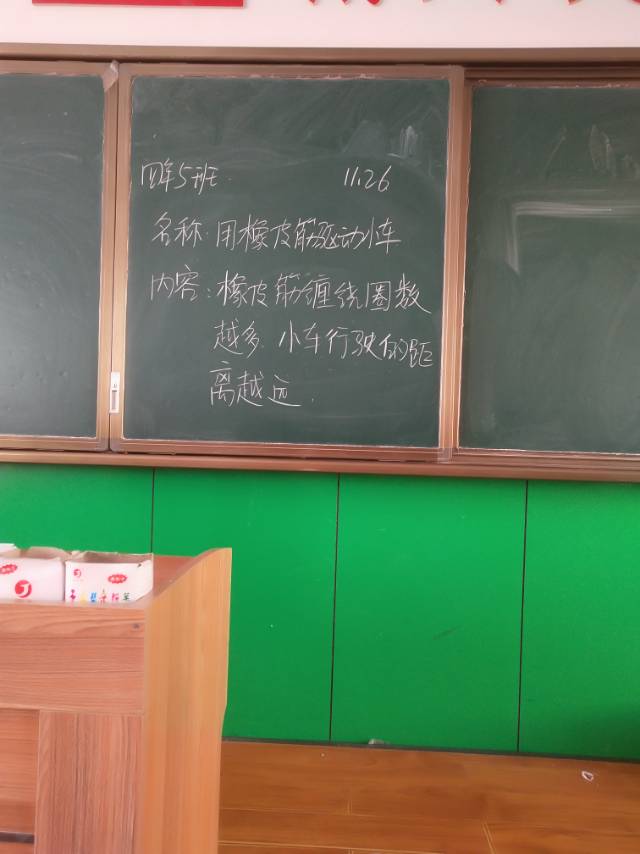 四年5班 11.26
名称:用橡皮筋驱动小车
内容:橡皮筋缠绕圈数
越多.小车行驶的距
离越远.
J